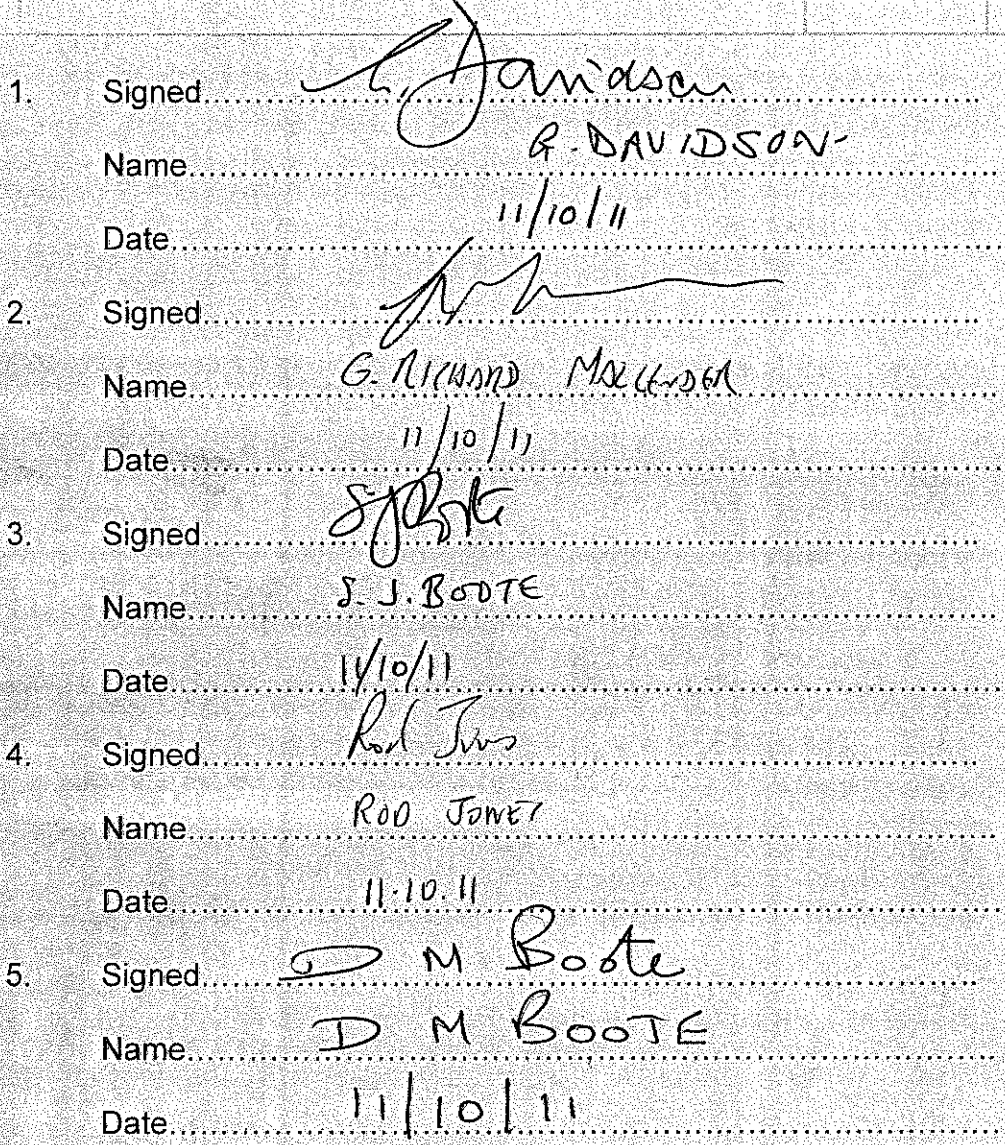 1. Signed G. Davidson
Name G. DAVIDSON
Date 11/10/11
2. Signed
Name G. RICHARD MALLENDER
Date 11/10/11
3. Signed SJBoote
Name S. J. BOOTE
Date 11/10/11
4. Signed Rod Jones
Name ROD JONES
Date 11.10.11
5. Signed D M Boote
Name D M BOOTE
Date 11/10/11